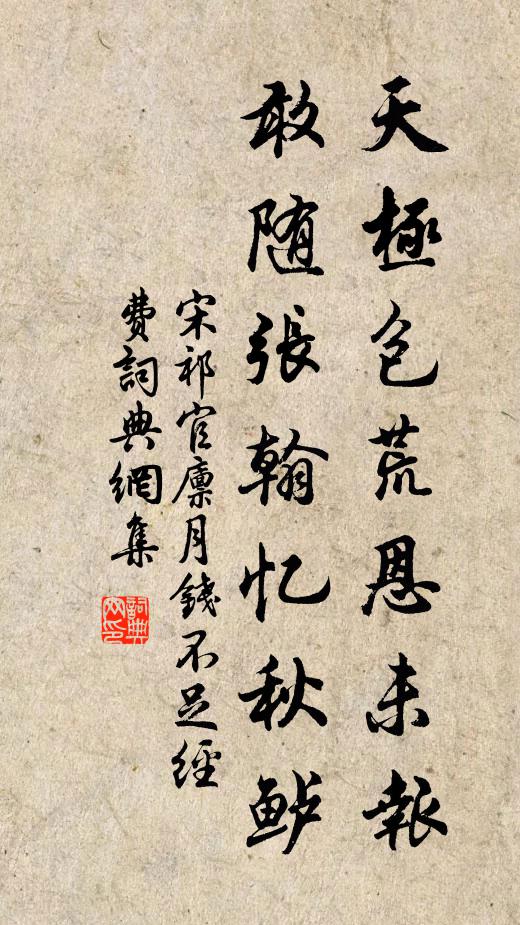 天極包荒恩未報
敢随張翰忆秋鲈
宋祁官廪月錢不足經
費詞典網集
詞典
网印